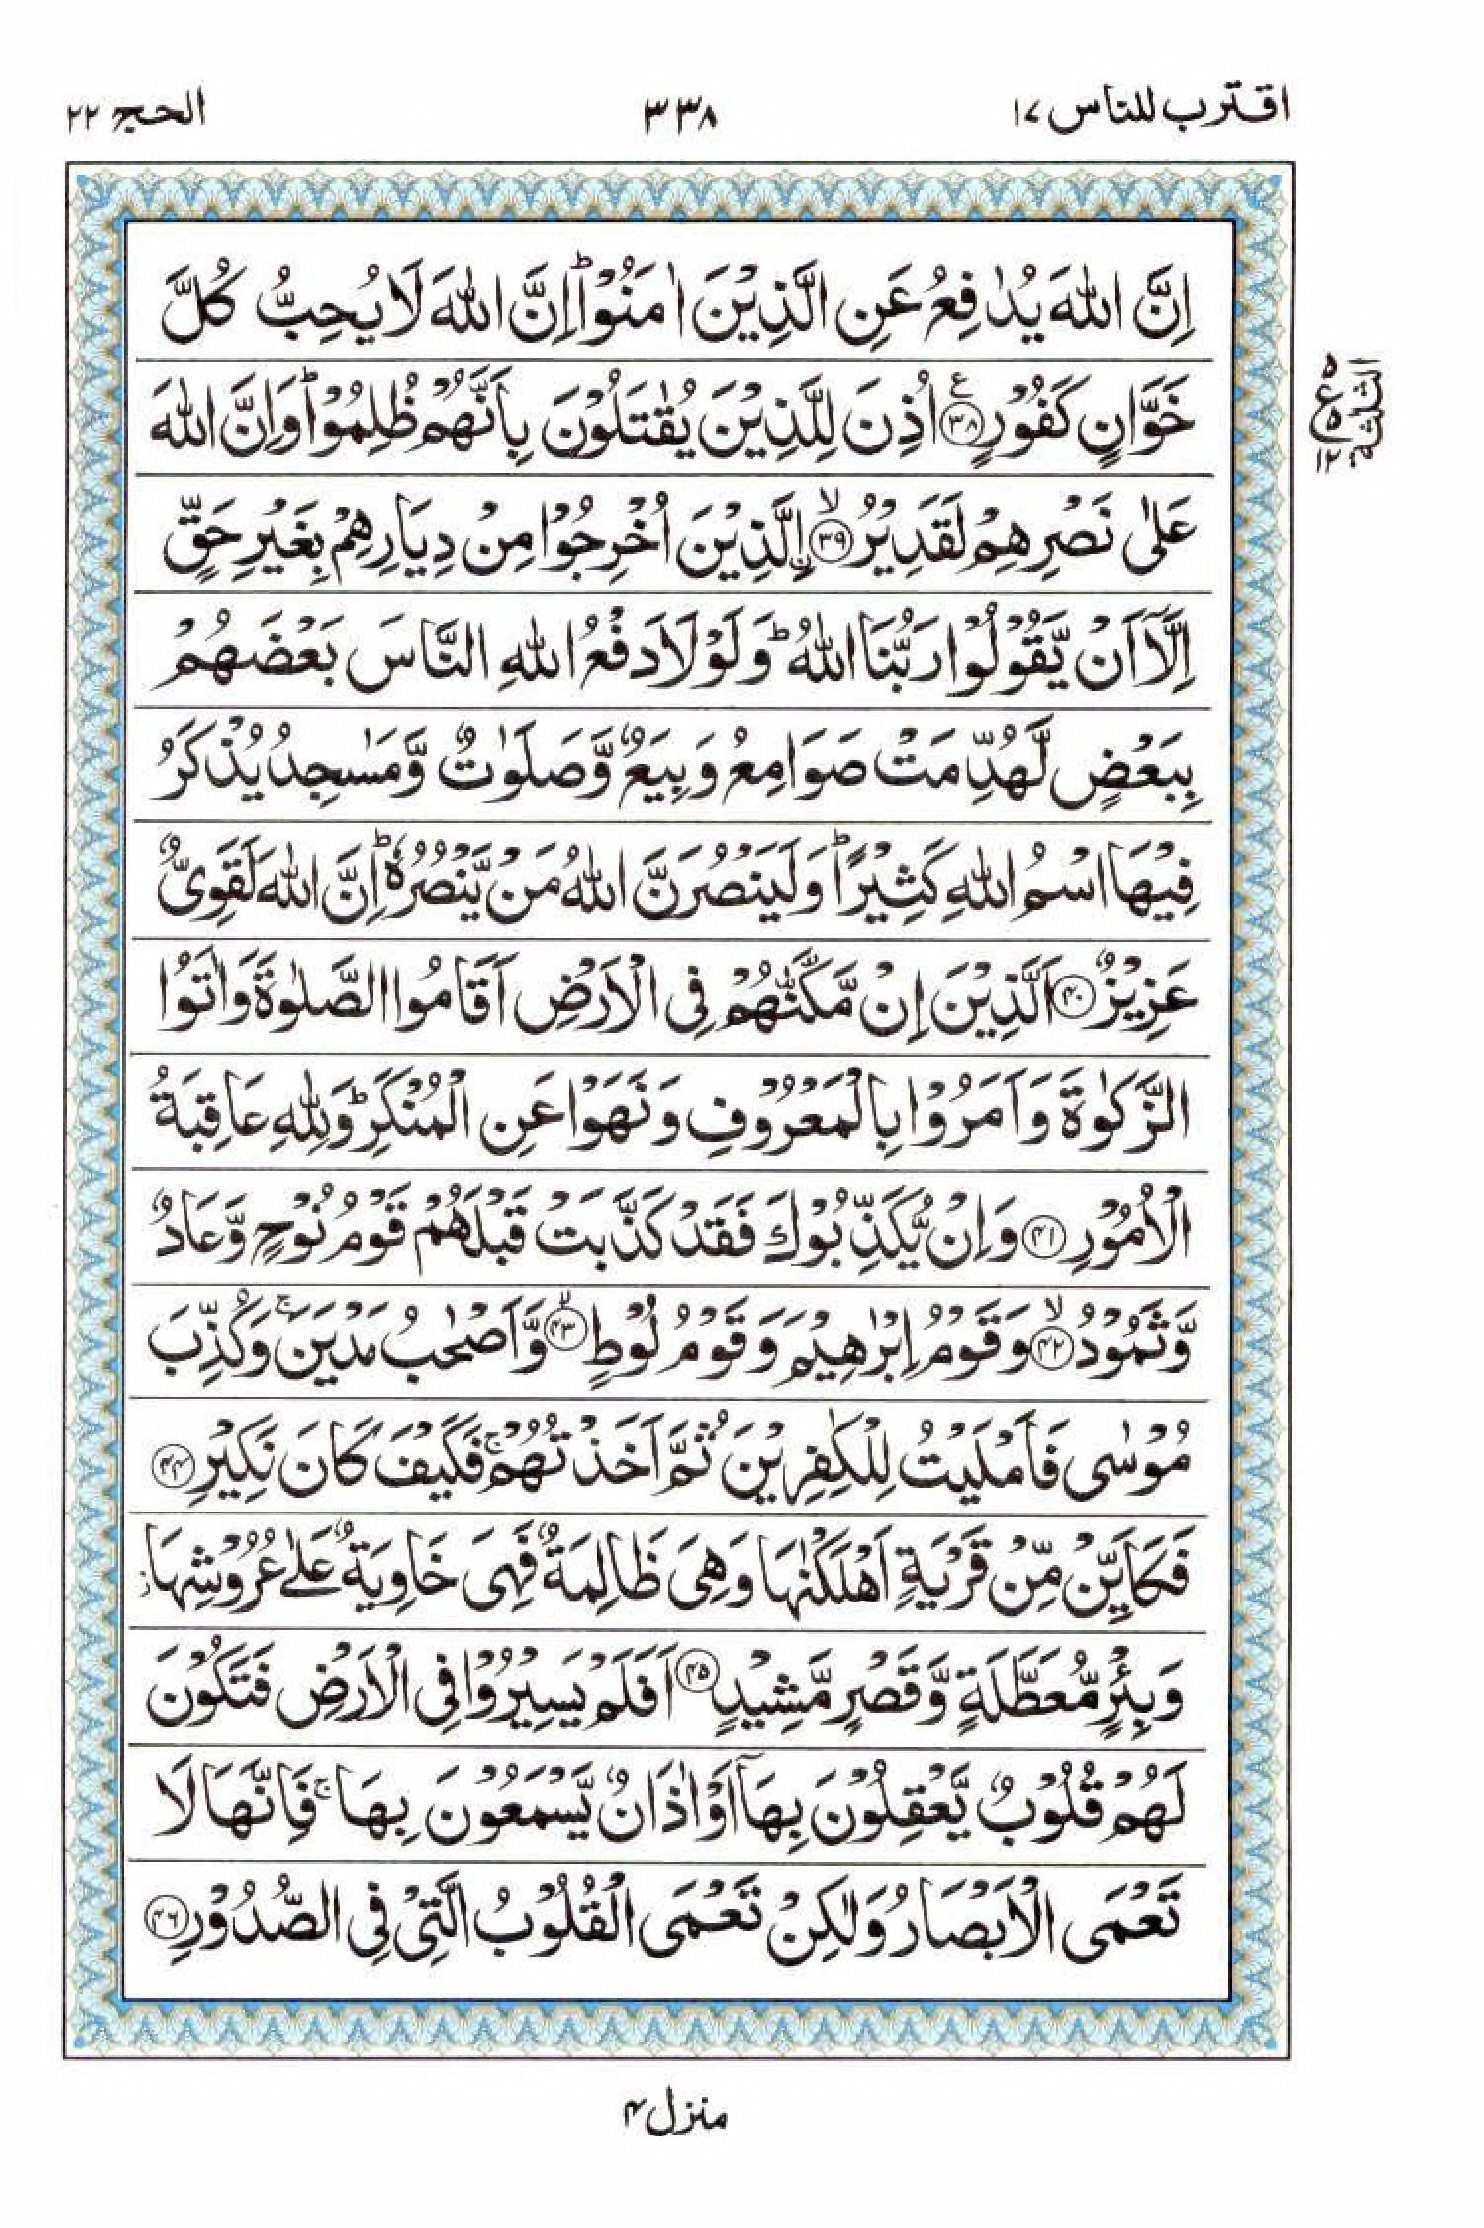 اقترب للناس ۱۷
۳۳۸
الحج ۲۲
اِنَّ اللّٰهَ یُدٰفِعُ عَنِ الَّذِیْنَ اٰمَنُوْاؕ اِنَّ اللّٰهَ لَا یُحِبُّ كُلَّ
خَوَّانٍ كَفُوْرٍ۠ ۳۸ اُذِنَ لِلَّذِیْنَ یُقٰتَلُوْنَ بِاَنَّهُمْ ظُلِمُوْاؕ وَاِنَّ اللّٰهَ
عَلٰی نَصْرِهِمْ لَقَدِیْرُۙ ۳۹ ِ۟الَّذِیْنَ اُخْرِجُوْا مِنْ دِیَارِهِمْ بِغَیْرِ حَقٍّ
اِلَّاۤ اَنْ یَّقُوْلُوْا رَبُّنَا اللّٰهُؕ وَلَوْلَا دَفْعُ اللّٰهِ النَّاسَ بَعْضَهُمْ
بِبَعْضٍ لَّهُدِّمَتْ صَوَامِعُ وَبِیَعٌ وَّصَلَوٰتٌ وَّمَسٰجِدُ یُذْكَرُ
فِیْهَا اسْمُ اللّٰهِ كَثِیْرًاؕ وَلَیَنْصُرَنَّ اللّٰهُ مَنْ یَّنْصُرُهٗؕ اِنَّ اللّٰهَ لَقَوِیٌّ
عَزِیْزٌ ۴۰ اَلَّذِیْنَ اِنْ مَّكَّنّٰهُمْ فِی الْاَرْضِ اَقَامُوا الصَّلٰوةَ وَاٰتَوُا
الزَّكٰوةَ وَاَمَرُوْا بِالْمَعْرُوْفِ وَنَهَوْا عَنِ الْمُنْكَرِؕ وَلِلّٰهِ عَاقِبَةُ
الْاُمُوْرِ ۴۱ وَاِنْ یُّكَذِّبُوْكَ فَقَدْ كَذَّبَتْ قَبْلَهُمْ قَوْمُ نُوْحٍ وَّعَادٌ
وَّثَمُوْدُۙ ۴۲ وَقَوْمُ اِبْرٰهِیْمَ وَقَوْمُ لُوْطٍۙ ۴۳ وَّاَصْحٰبُ مَدْیَنَۚ وَكُذِّبَ
مُوْسٰی فَاَمْلَیْتُ لِلْكٰفِرِیْنَ ثُمَّ اَخَذْتُهُمْۚ فَكَیْفَ كَانَ نَكِیْرِ ۴۴
فَكَاَیِّنْ مِّنْ قَرْیَةٍ اَهْلَكْنٰهَا وَهِیَ ظَالِمَةٌ فَهِیَ خَاوِیَةٌ عَلٰی عُرُوْشِهَا
وَبِئْرٍ مُّعَطَّلَةٍ وَّقَصْرٍ مَّشِیْدٍ ۴۵ اَفَلَمْ یَسِیْرُوْا فِی الْاَرْضِ فَتَكُوْنَ
لَهُمْ قُلُوْبٌ یَّعْقِلُوْنَ بِهَاۤ اَوْ اٰذَانٌ یَّسْمَعُوْنَ بِهَاۚ فَاِنَّهَا لَا
تَعْمَی الْاَبْصَارُ وَلٰكِنْ تَعْمَی الْقُلُوْبُ الَّتِیْ فِی الصُّدُوْرِ ۴۶
۵
ع
۵
۱۲
الثلثة
منزل ۴